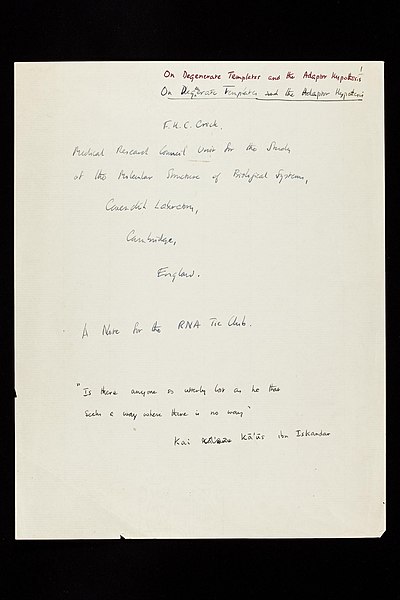 On Degenerate Templates and the Adaptor Hypothesis
On Degenerate Templates and the Adaptor Hypothesis
F.H.C. Crick.
Medical Research Council Unit for the Study
of the Molecular Structure of Biological Systems,
Cavendish Laboratory,
Cambridge,
England.
A Note for the RNA Tie Club.
"Is there anyone so utterly lost as he that
seeks a way where there is no way"
Kai Kā'ūs ibn Iskandar